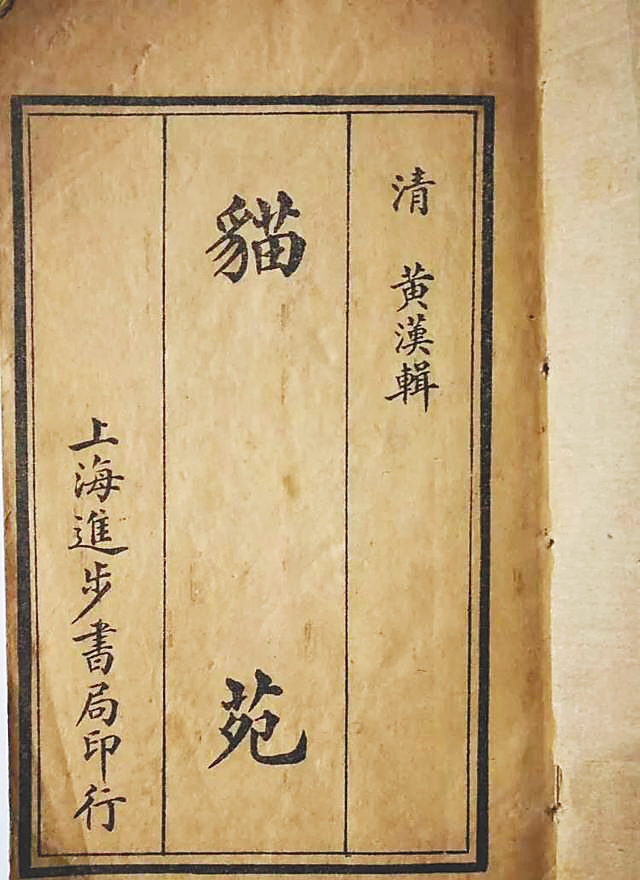 清 黄漢輯
貓苑
上海進步書局印行